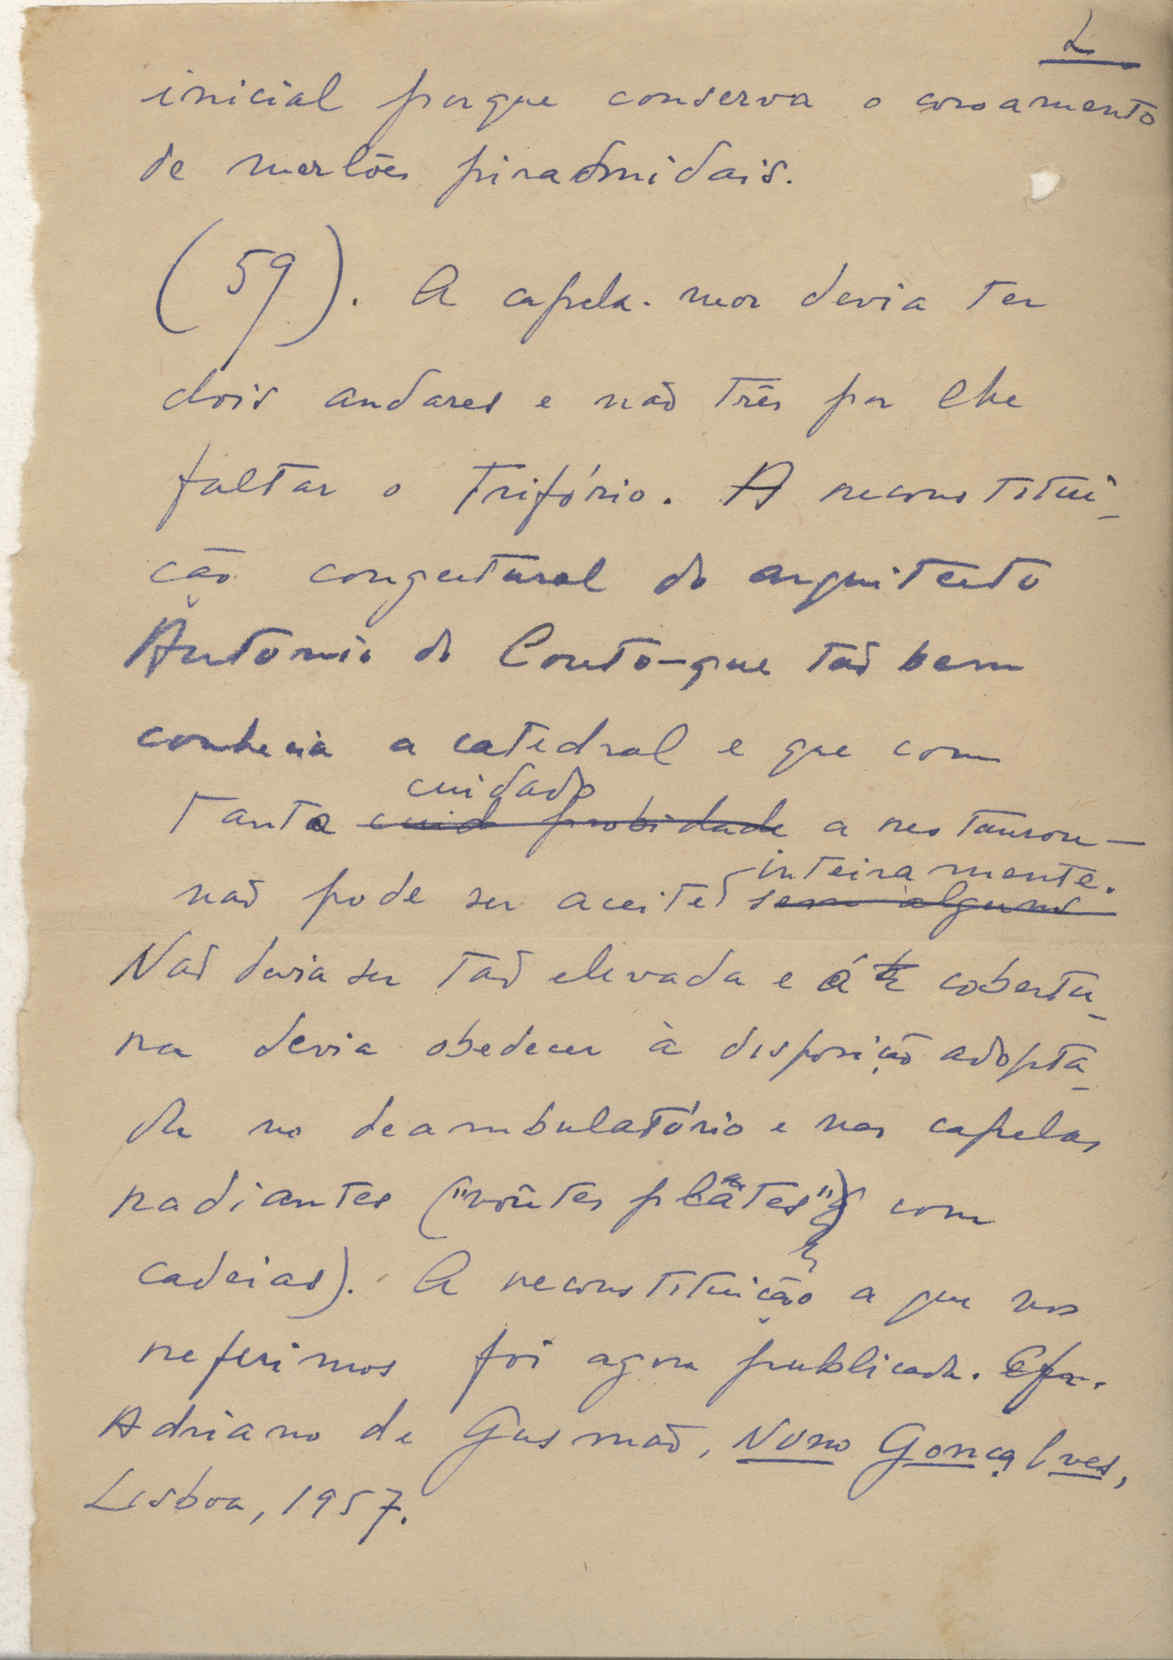 2
inicial porque conserva o coroamento
de merlões piramidais.
(59). A capela-mor devia ter
dois andares e não três por lhe
faltar o trifório. A reconstitui-
ção congectural do arquitecto
António do Couto - que tão bem
conhecia a catedral e que com
cuidado
tanto cuid probidade a restaurou -
inteiramente.
não pode ser aceite sem alguns
Não devia ser tão elevada e a cobertu-
ra devia obedecer à disposição adopta-
da no deambulatório e nas capelas
radiantes ("voûtes plates" com
cadeias). A reconstituição a que nos
referimos foi agora publicada. Cfr.
Adriano de Gusmão, Nuno Gonçalves,
Lisboa, 1957.